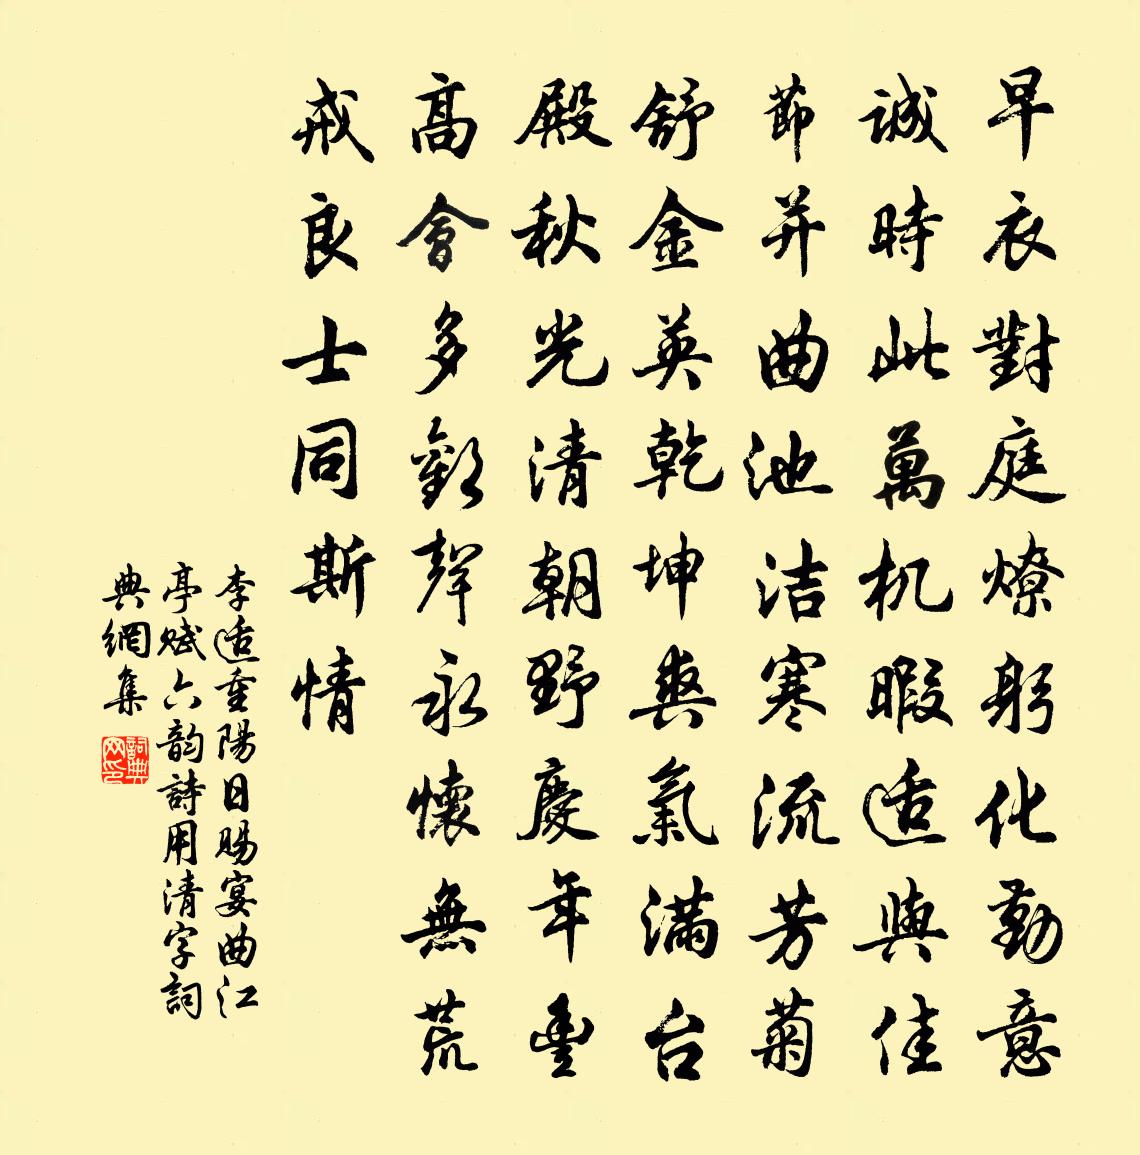 早衣對庭燎躬化勤意
誠時此萬机暇适與佳
節并曲池洁寒流芳菊
舒金英乾坤爽氣滿台
殿秋光清朝野慶年豊
高會多歡聲永懷無荒
戒良士同斯情
李适重陽日賜宴曲江
亭賦六韵詩用清字詞
典網集
詞典網印